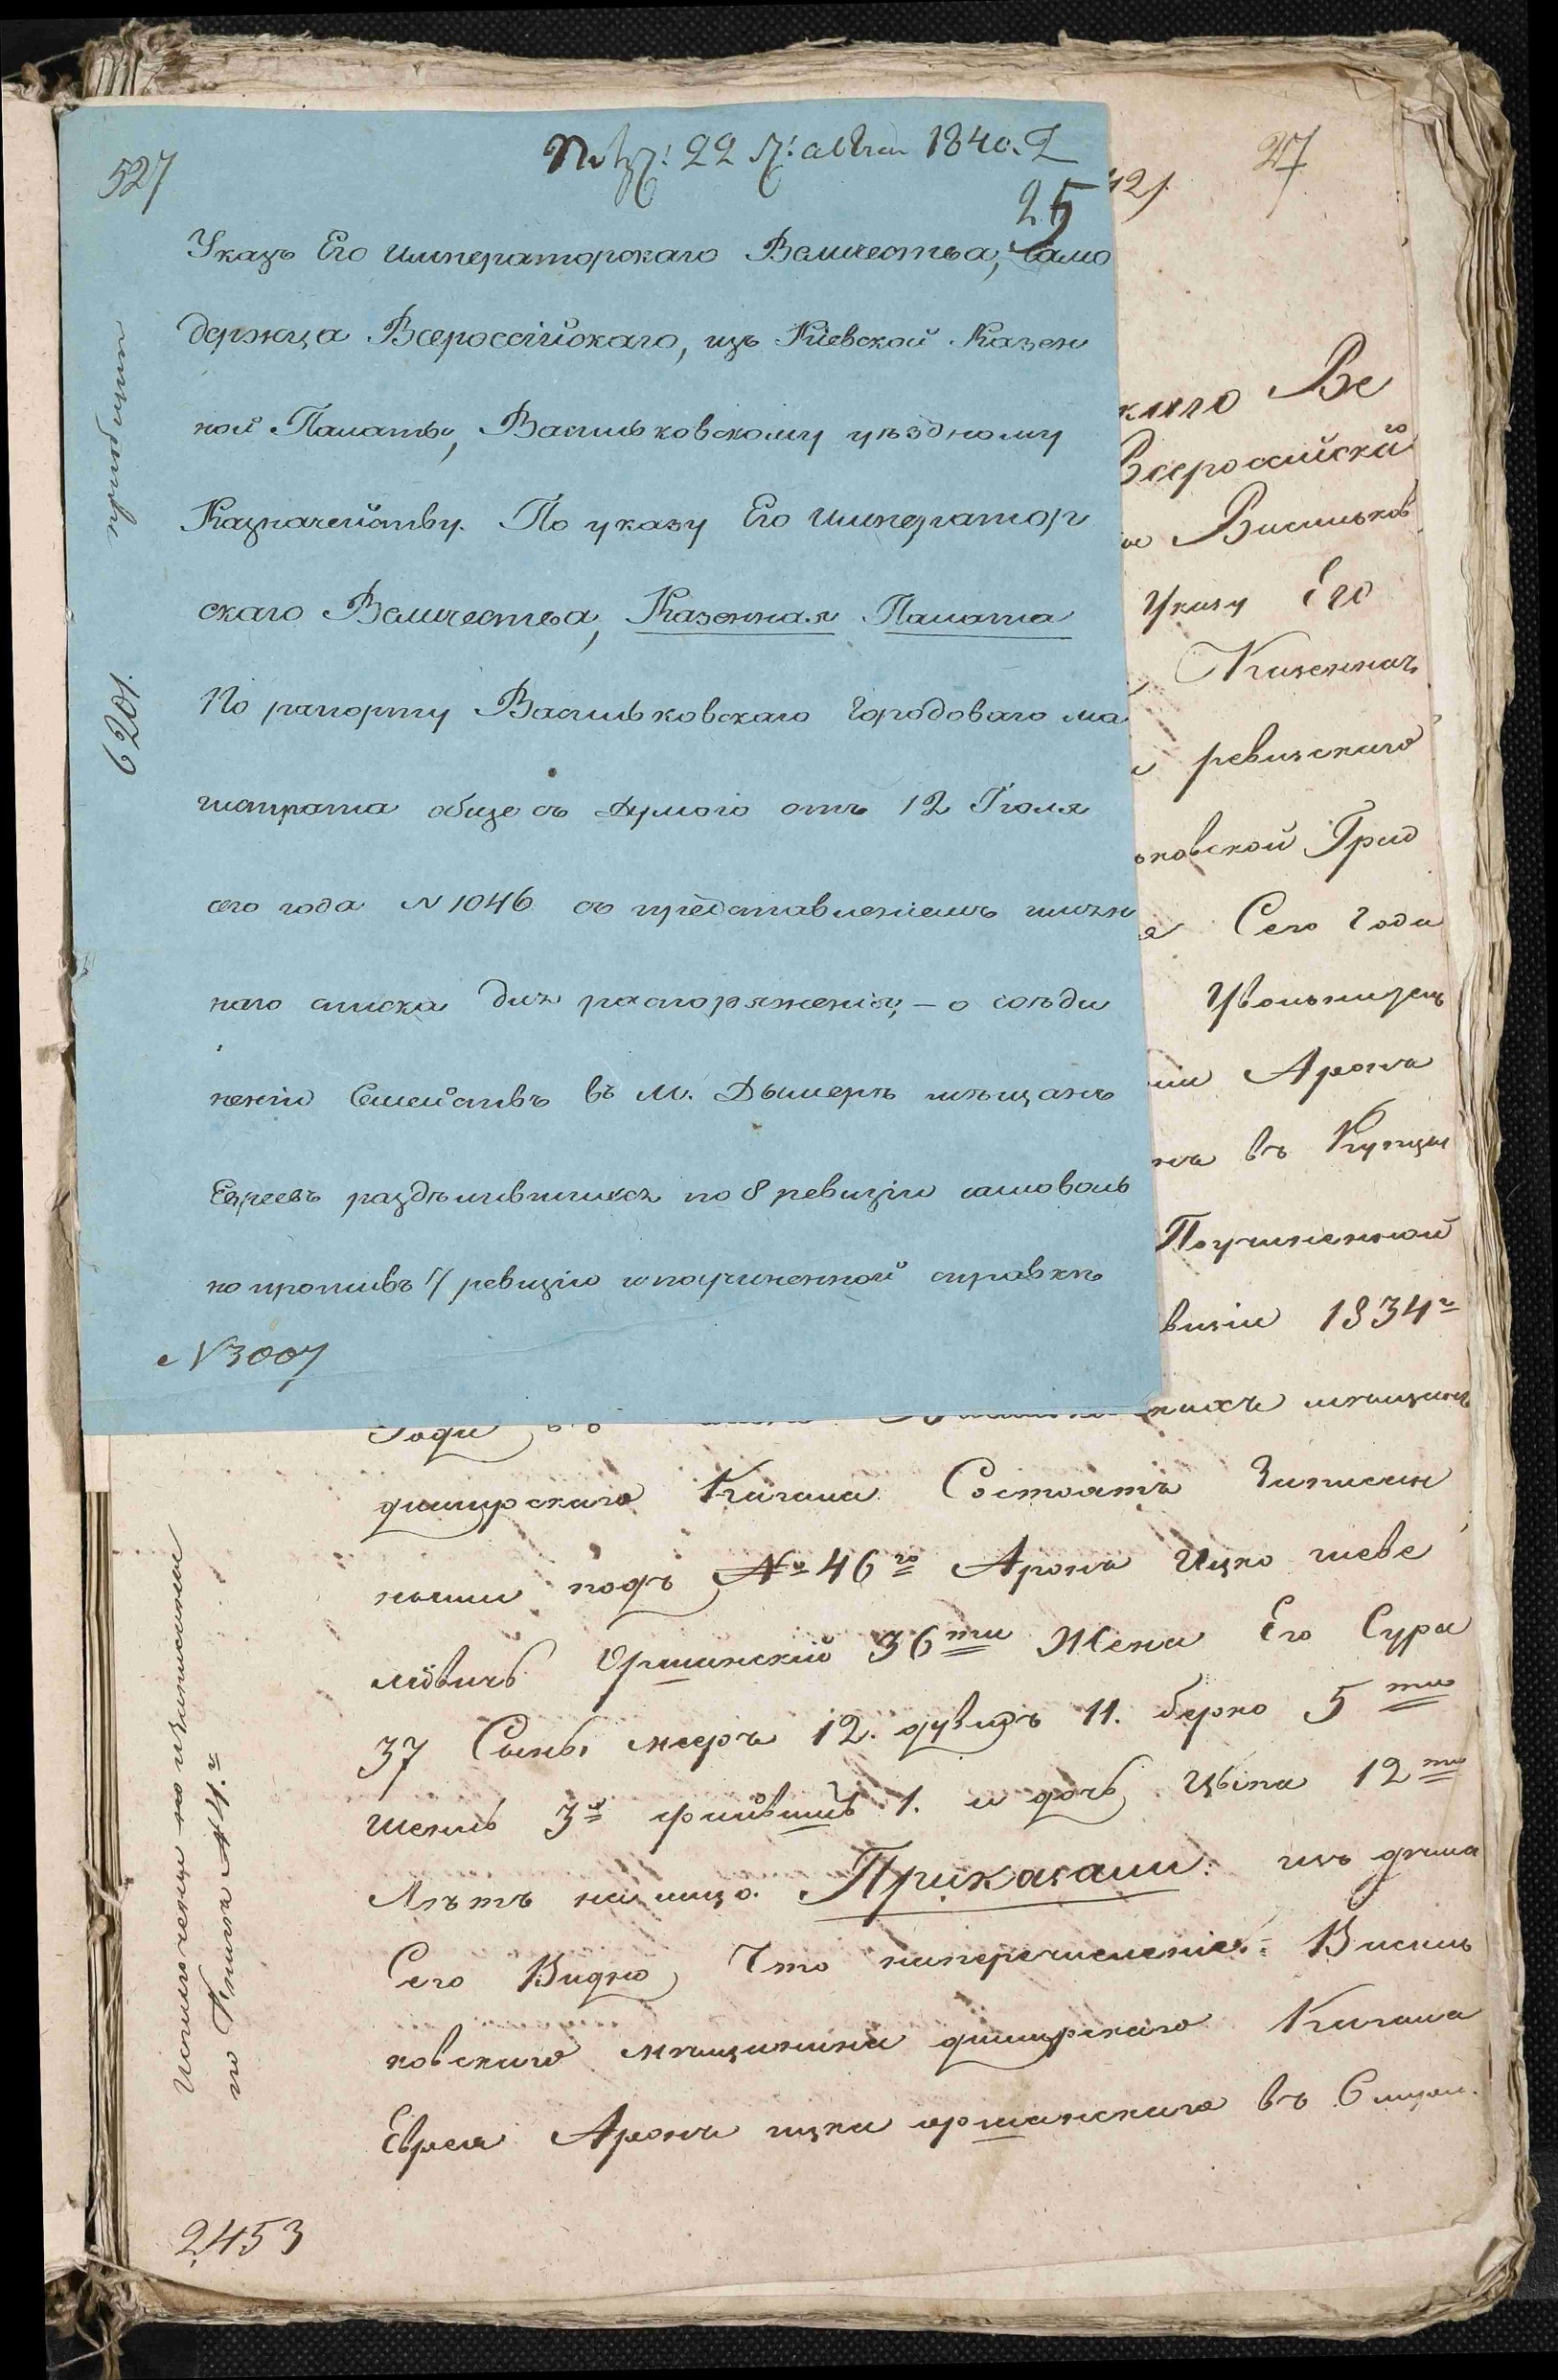 527
22 августа 1840. 25
Указъ Его Императорскаго Величества, Само
держца Всероссійскаго, изъ Кіевской Казен
ной Палаты, Васильковскому уѣздному
Казначейству. По указу Его Император
скаго Величества, Казенная Палата
По рапорту Васильковскаго Городоваго ма
гистрата обще съ Думою отъ 12 Іюля
сего года N 1046 съ представленіемъ имян
наго списка для распоряженія, – о соѣди
неніи Семействъ въ м. Дымерѣ мѣщанъ
Евреевъ раздѣлившихся по 8 ревизіи самоволь
но противъ 7 ревизіи и по учиненной справкѣ
N 3007
приобщить
6201.
421.
27
каго Ве
Всероссийскаго
Васильков
Указу Его
, Казенная
ревизскаго
ковской Град
Сего Года
Увольнением
Арона
въ Купцы
По учиненной
визіи 1834г
Года мѣщанъ
димирскаго Кагала Состоятъ Записан
ными подъ № 46го Аронъ Ицко
Оршанскій 36ти Жена Его Сура
37 Сыны мееръ 12. дувидъ 11. берко 5ти
3х 1. и дочь Цыпа 12ти
Лѣтъ на лицо. Приказали: изъ дѣла
Сего Видно Что на перечисленіе Василь
ковскаго мѣщанина димирскаго Кагала
Еврея Арона ицки оршанскаго въ
Исключенъ но не записанъ
по Книга N 4.й
2453